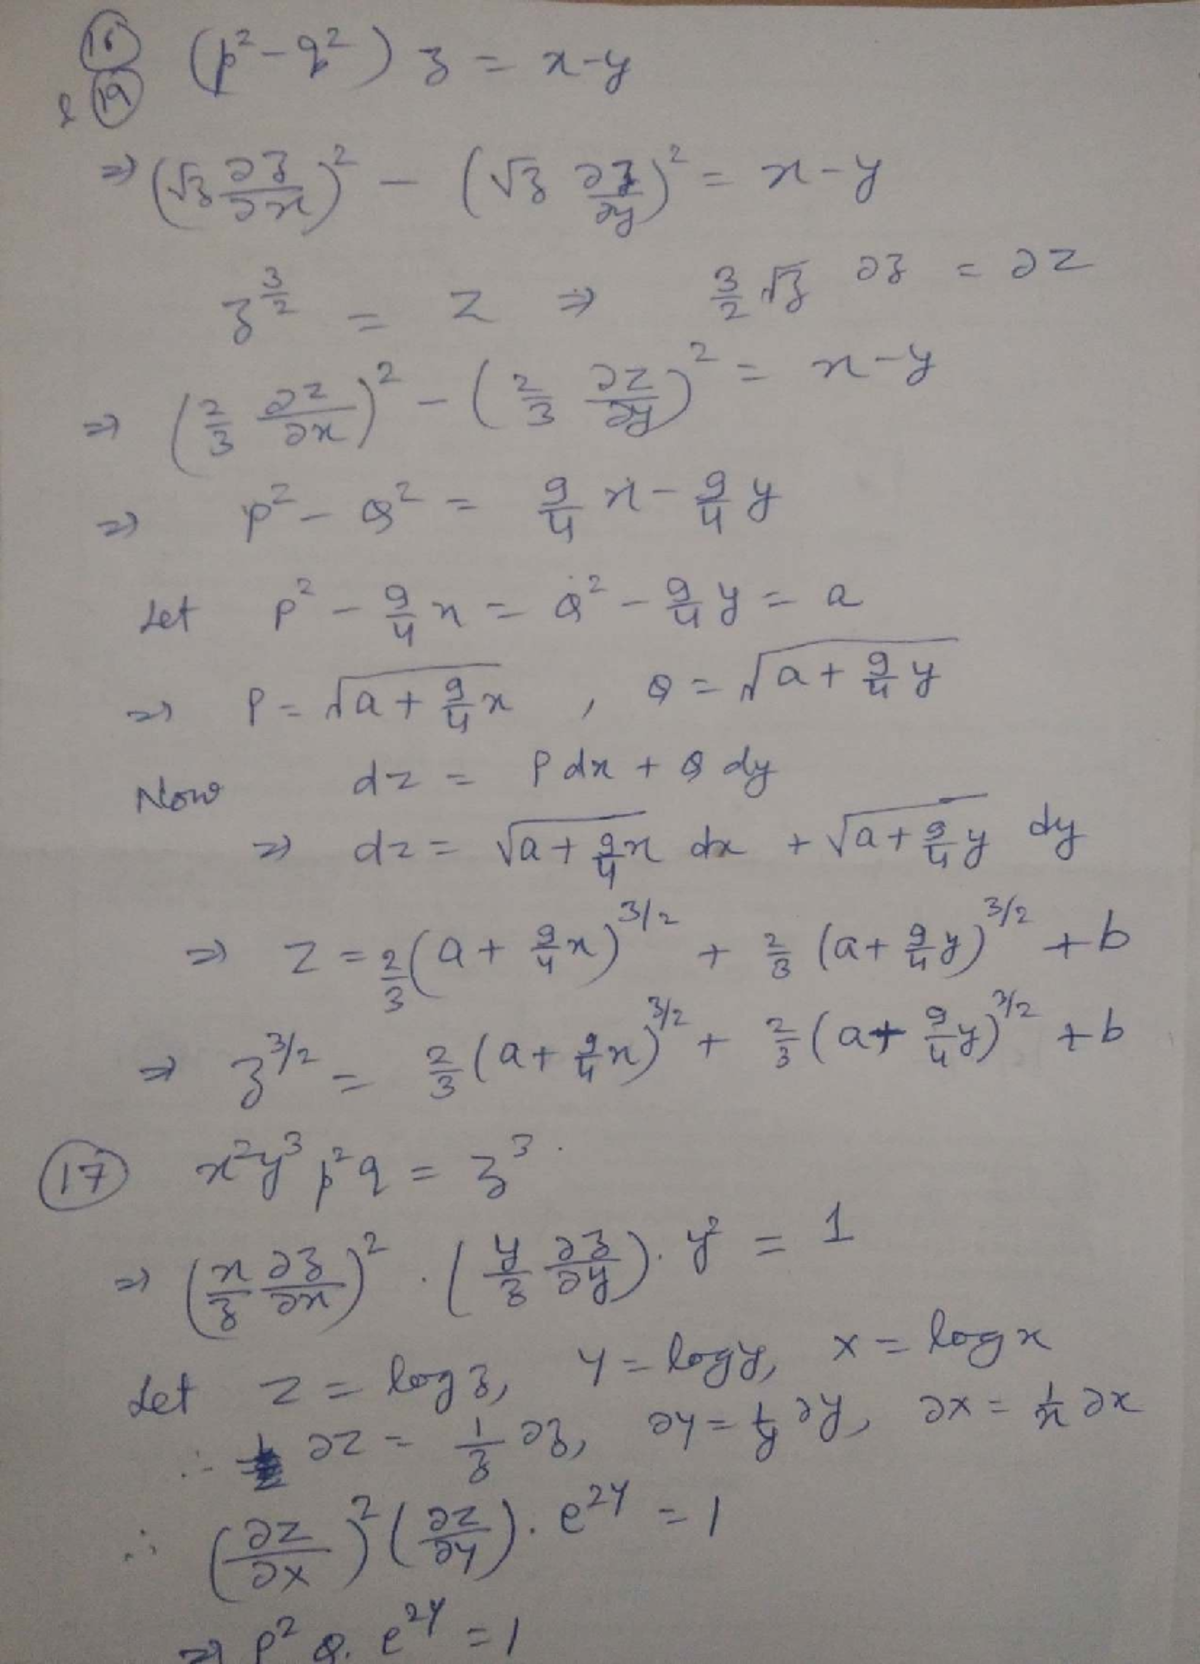 (16) (p² - q²) z = x - y
& (19)
⇒ (√z ∂z/∂x)² - (√z ∂z/∂y)² = x - y
z^(3/2) = Z ⇒ 3/2 √z ∂z = ∂Z
⇒ (2/3 ∂Z/∂x)² - (2/3 ∂Z/∂y)² = x - y
⇒ P² - Q² = 9/4 x - 9/4 y
Let P² - 9/4 x = Q² - 9/4 y = a
⇒ P = √(a + 9/4 x) , Q = √(a + 9/4 y)
Now dz = P dx + Q dy
⇒ dz = √(a + 9/4 x) dx + √(a + 9/4 y) dy
⇒ Z = 2/3 (a + 9/4 x)^(3/2) + 2/3 (a + 9/4 y)^(3/2) + b
⇒ z^(3/2) = 2/3 (a + 9/4 x)^(3/2) + 2/3 (a + 9/4 y)^(3/2) + b
(17) x² y³ p² q = z³
⇒ (x/z ∂z/∂x)² · (y/z ∂z/∂y) · y² = 1
Let Z = log z, Y = log y, X = log x
∴ ∂Z = 1/z ∂z, ∂Y = 1/y ∂y, ∂X = 1/x ∂x
∴ (∂Z/∂X)² (∂Z/∂Y) · e^(2Y) = 1
⇒ P² Q · e^(2Y) = 1